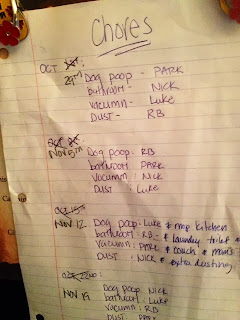 Chores
OCT
29th Dog poop - PARK
bathroom - NICK
vacumn - Luke
DUST - RB
NOV 5TH Dog poop: RB
bathroom PARK
vacumn: NICK
DUST: Luke
NOV 12 Dog poop: Luke & mop kitchen
bathroom: RB - & laundry
vacumn: PARK & couch &
DUST: NICK & extra dusting
NOV 19 Dog poop NICK
bathroom: Luke
vacumn: RB
DUST PARK